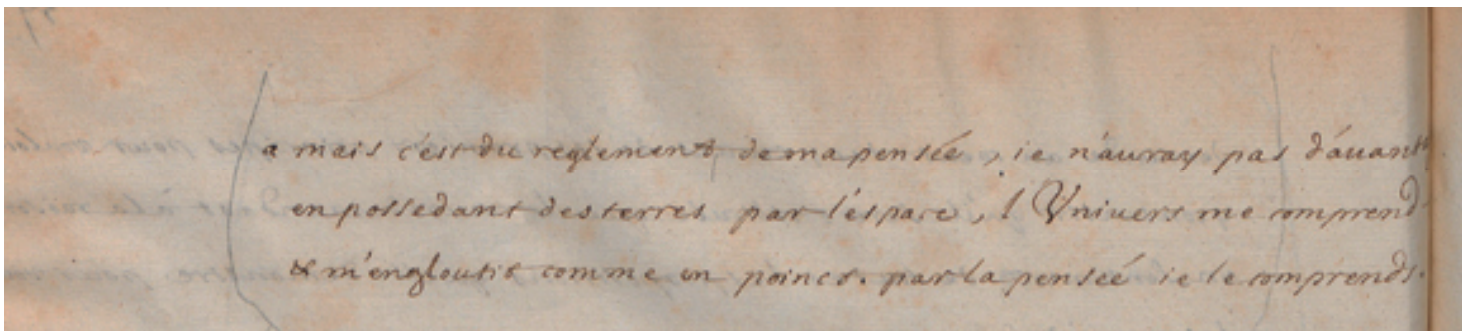 a mais c'est du reglement, de ma pensée, ie n'auray pas d'auant
en possedant des terres par l'espace, l'Vniuers me comprend
& m'engloutit comme en poinct. par la pensée ie le comprends.